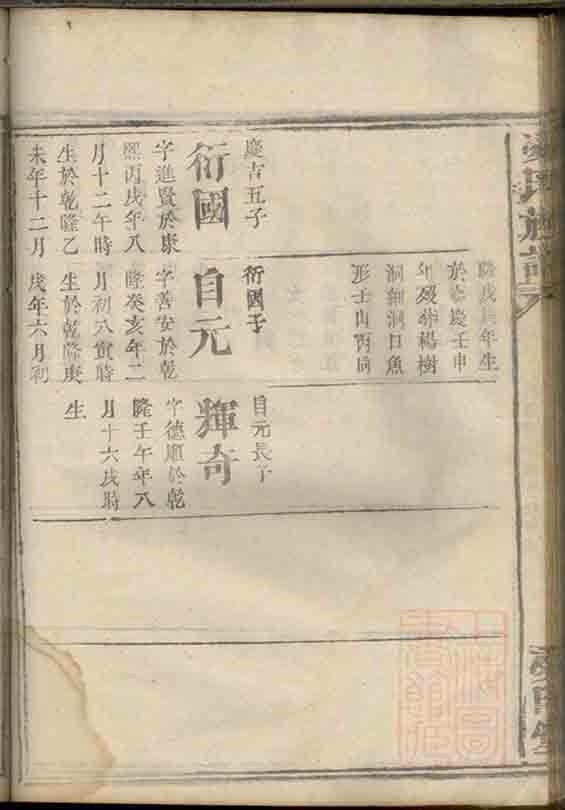 隆戊年生
於嘉慶壬申
年歿葬楊樹
洞細洞口魚
形壬山丙向
慶吉五子
衍國
字進賢於康
熙丙戌年八
月十二午時
生於乾隆乙
未年十二月
衍國子
自元
字善安於乾
隆癸亥年二
月初八寅時
生於乾隆庚
戌年六月初
自元長子
輝奇
字德順於乾
隆壬午年八
月十六戌時
生
氏族譜
堂
上海圖
書館藏